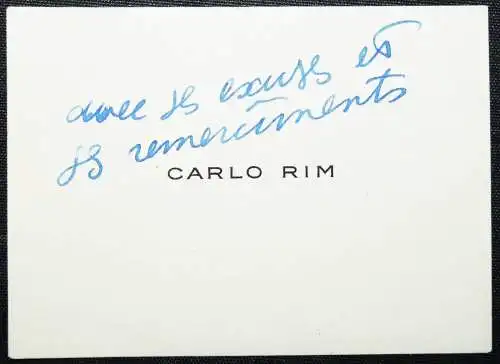 avec ses excuses et
ses remerciments
CARLO RIM